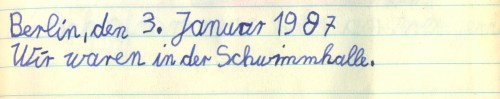 Berlin, den 3. Januar 1987
Wir waren in der Schwimmhalle.